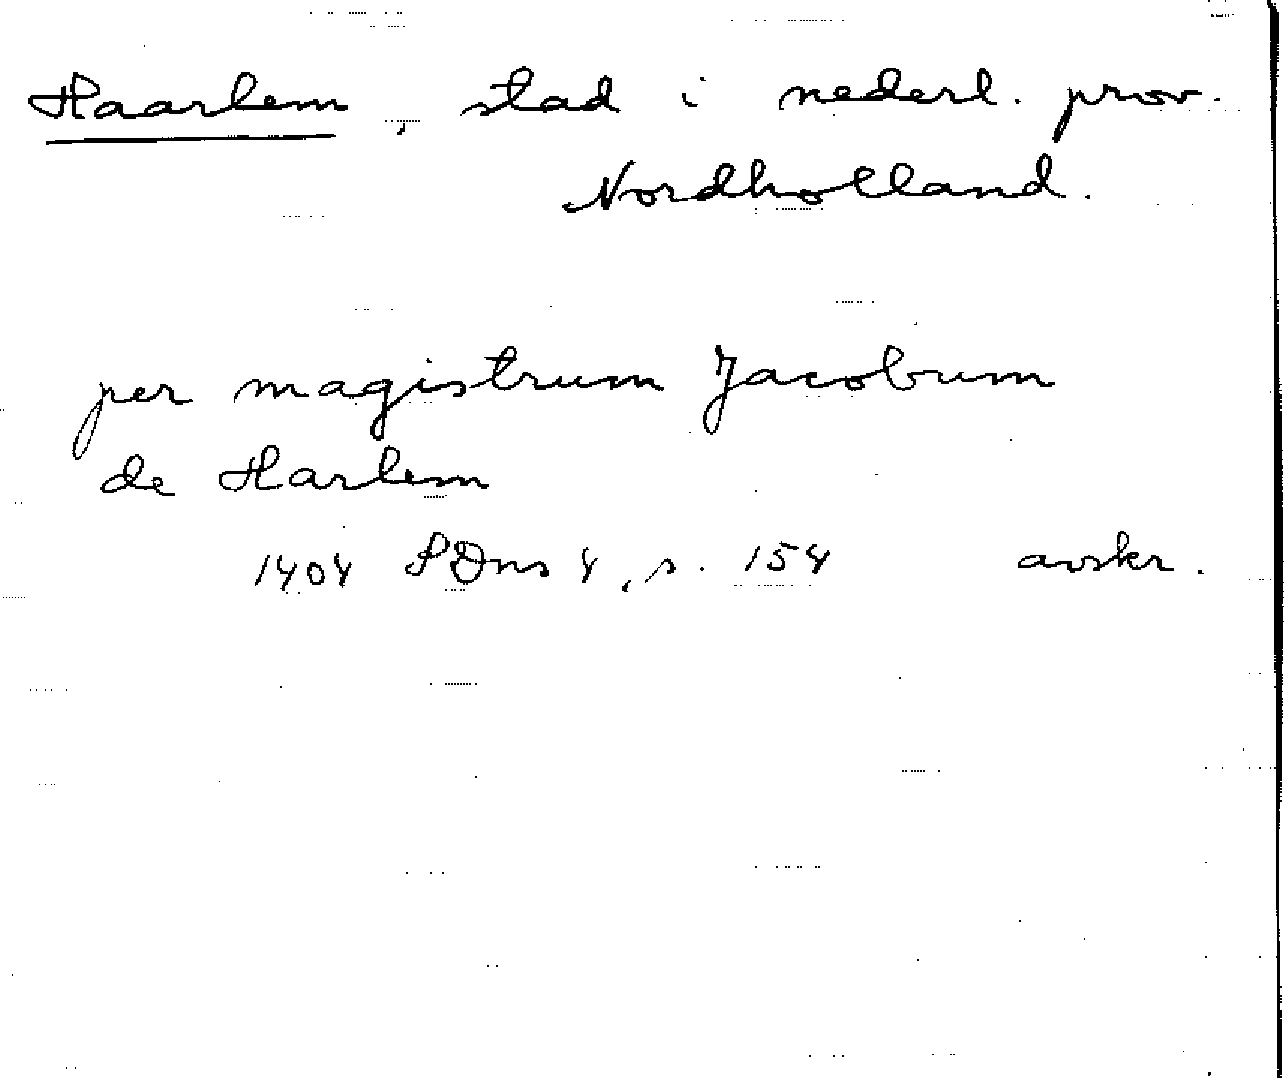 Haarlem, stad i nederl. prov.
Nordholland.
per magistrum Jacobum
de Harlem
1404 SDns 4, s. 154 avskr.